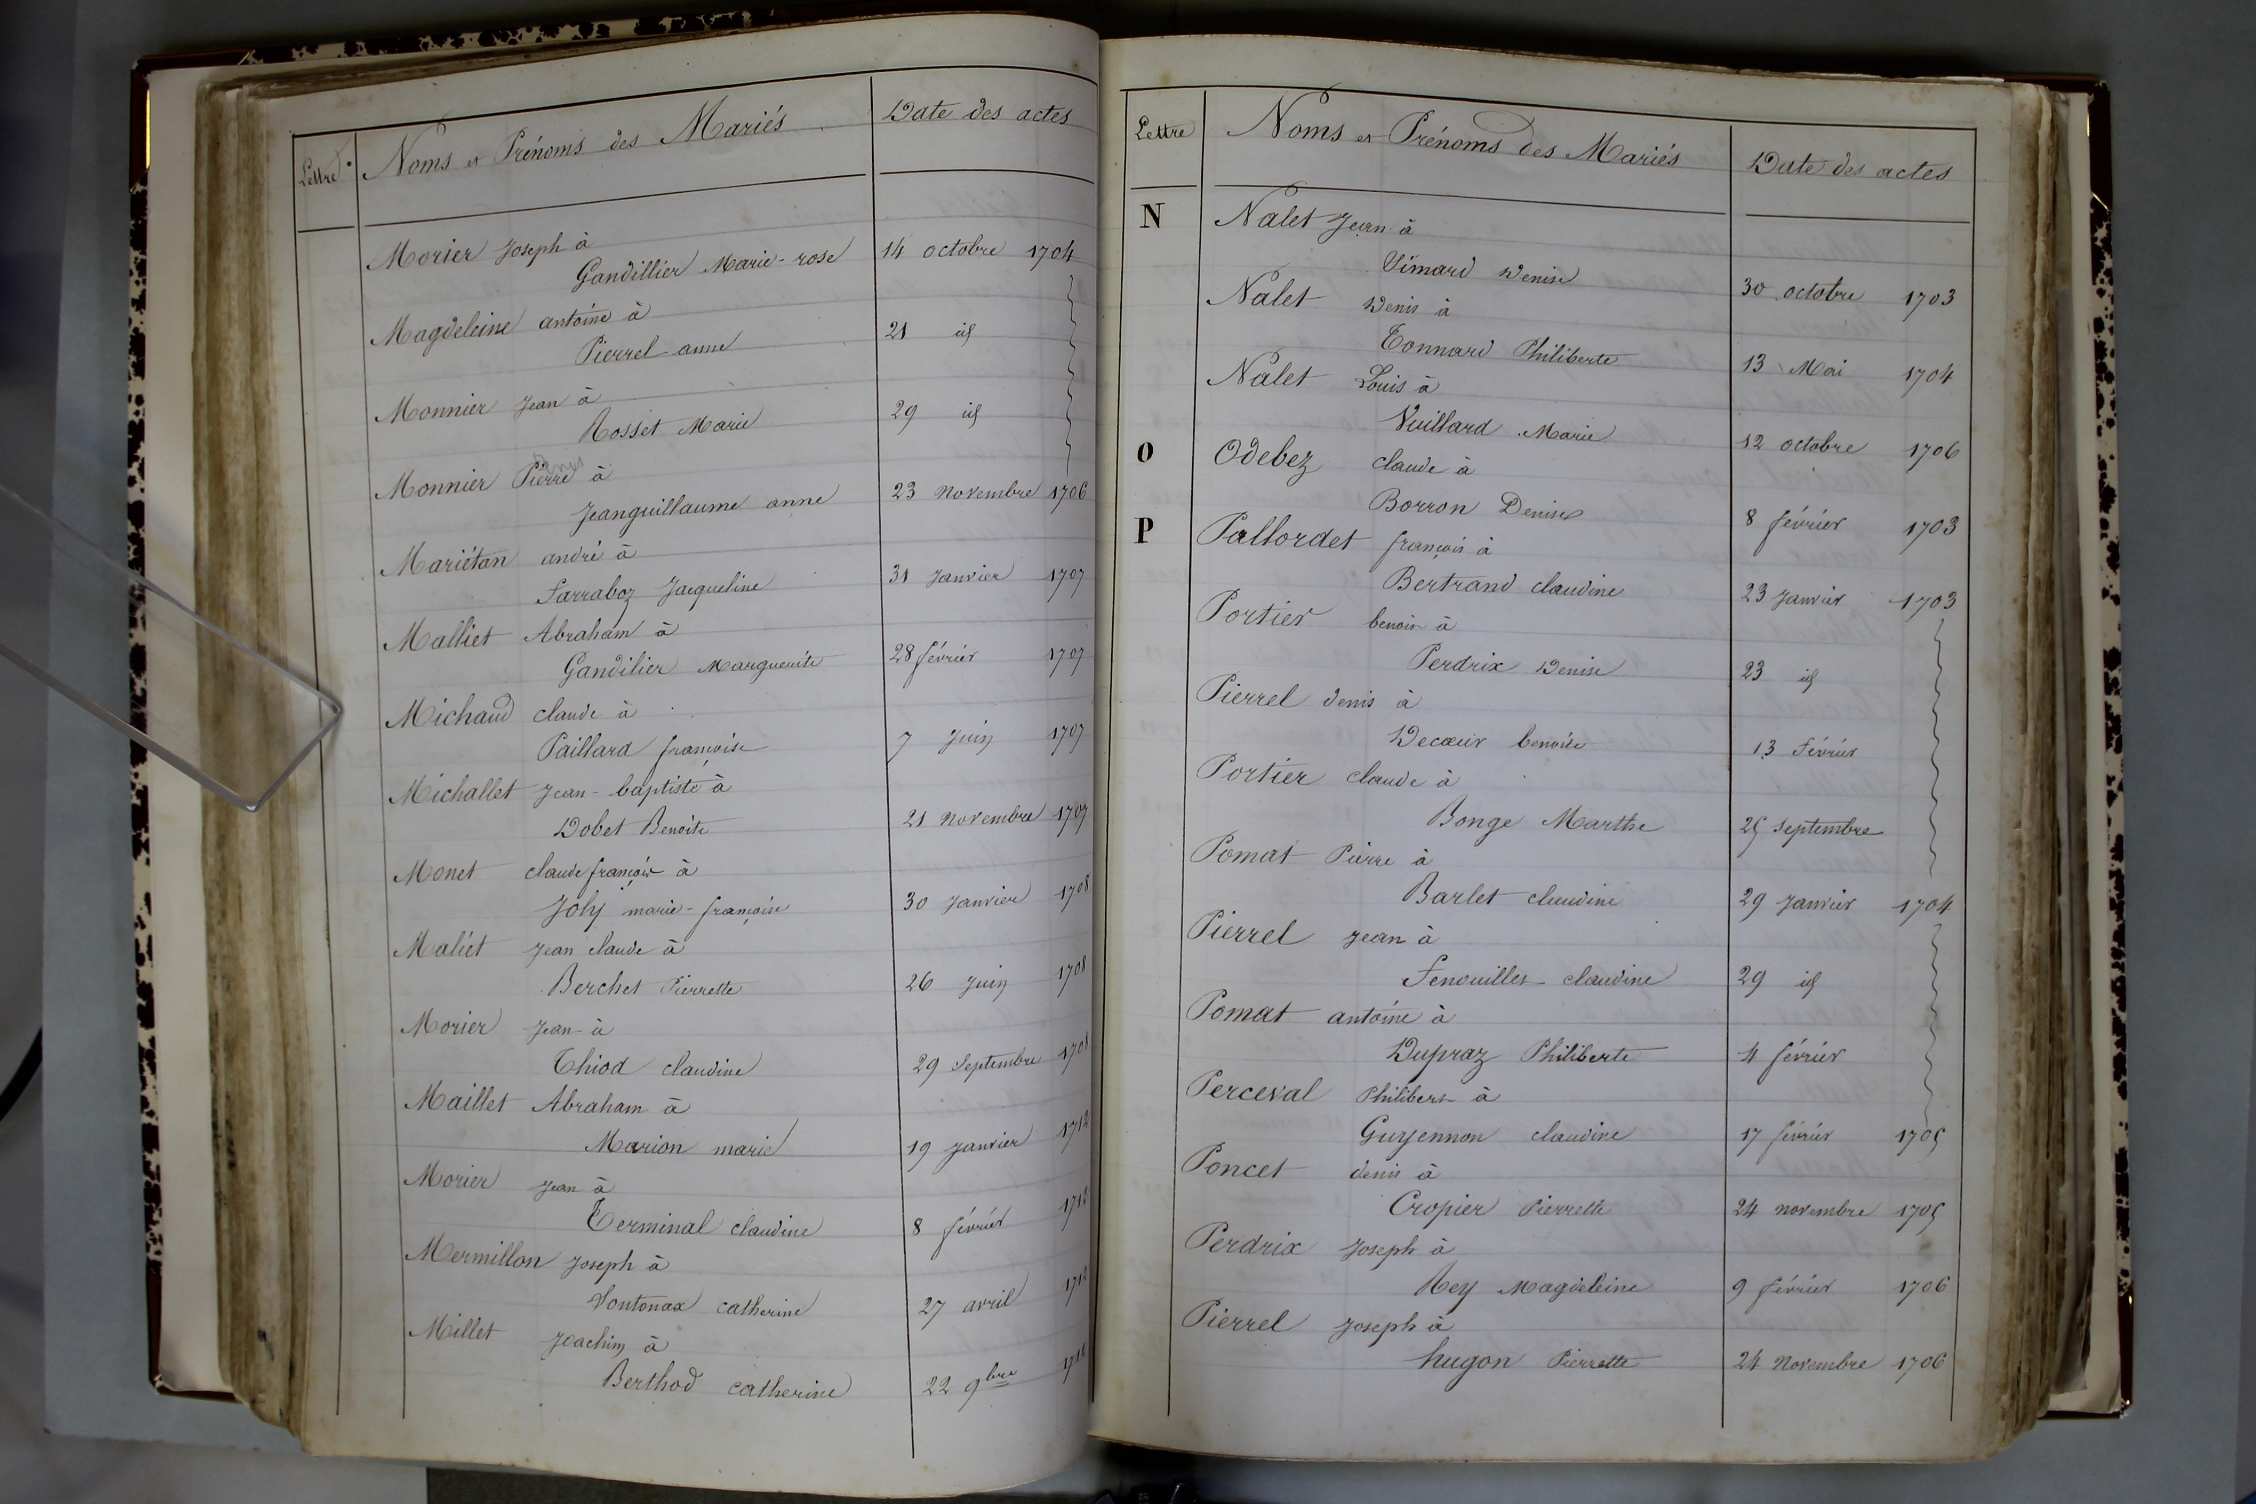 Lettre Noms et Prénoms des Mariés Date des actes
Morier Joseph à
Gandillier Marie-rose 14 octobre 1704
Magdeleine antoine à
Pierrel anne 21 id
Monnier Jean à
Rosset Marie 29 id
Denis
Monnier Pierre à
Jeanguillaume anne 23 novembre 1706
Mariétan andré à
Farraboz Jacqueline 31 Janvier 1707
Malliet Abraham à
Gandilier Marguerite 28 février 1707
Michaud claude à
Paillard françoise 7 Juin 1707
Michallet Jean-baptiste à
Dobet Benoite 21 novembre 1707
Monet claude françois à
Joly marie-françoise 30 Janvier 1708
Maliet Jean claude à
Berchet Pierrette 26 Juin 1708
Morier Jean à
Thiod claudine 29 Septembre 1708
Maillet Abraham à
Marion marie 19 Janvier 1712
Morier Jean à
Terminal claudine 8 février 1712
Mermillon Joseph à
Sontonax catherine 27 avril 1712
Millet Joachim à
Berthod catherine 22 9bre
Lettre Noms et Prénoms des Mariés Date des actes
N Nalet Jean à
Simard Denise 30 octobre 1703
Nalet Denis à
Tonnard Philiberte 13 Mai 1704
Nalet Louis à
Vuillard Marie 12 octobre 1706
O Odebez claude à
Borron Denise 8 février 1703
P Pallordet françois à
Bertrand claudine 23 Janvier 1703
Portier benoit à
Perdrix Denise 23 id
Pierrel denis à
Decoeur benoite 13 Février
Portier claude à
Bonge Marthe 25 septembre
Pomat Pierre à
Barlet claudine 29 Janvier 1704
Pierrel Jean à
Fenouillet claudine 29 id
Pomat antoine à
Dupraz Philiberte 4 février
Perceval Philibert à
Guyennon claudine 17 février 1705
Poncet denis à
Cropier Pierrette 24 novembre 1705
Perdrix Joseph à
Rey Magdeleine 9 février 1706
Pierrel Joseph à
hugon Pierrette 24 Novembre 1706